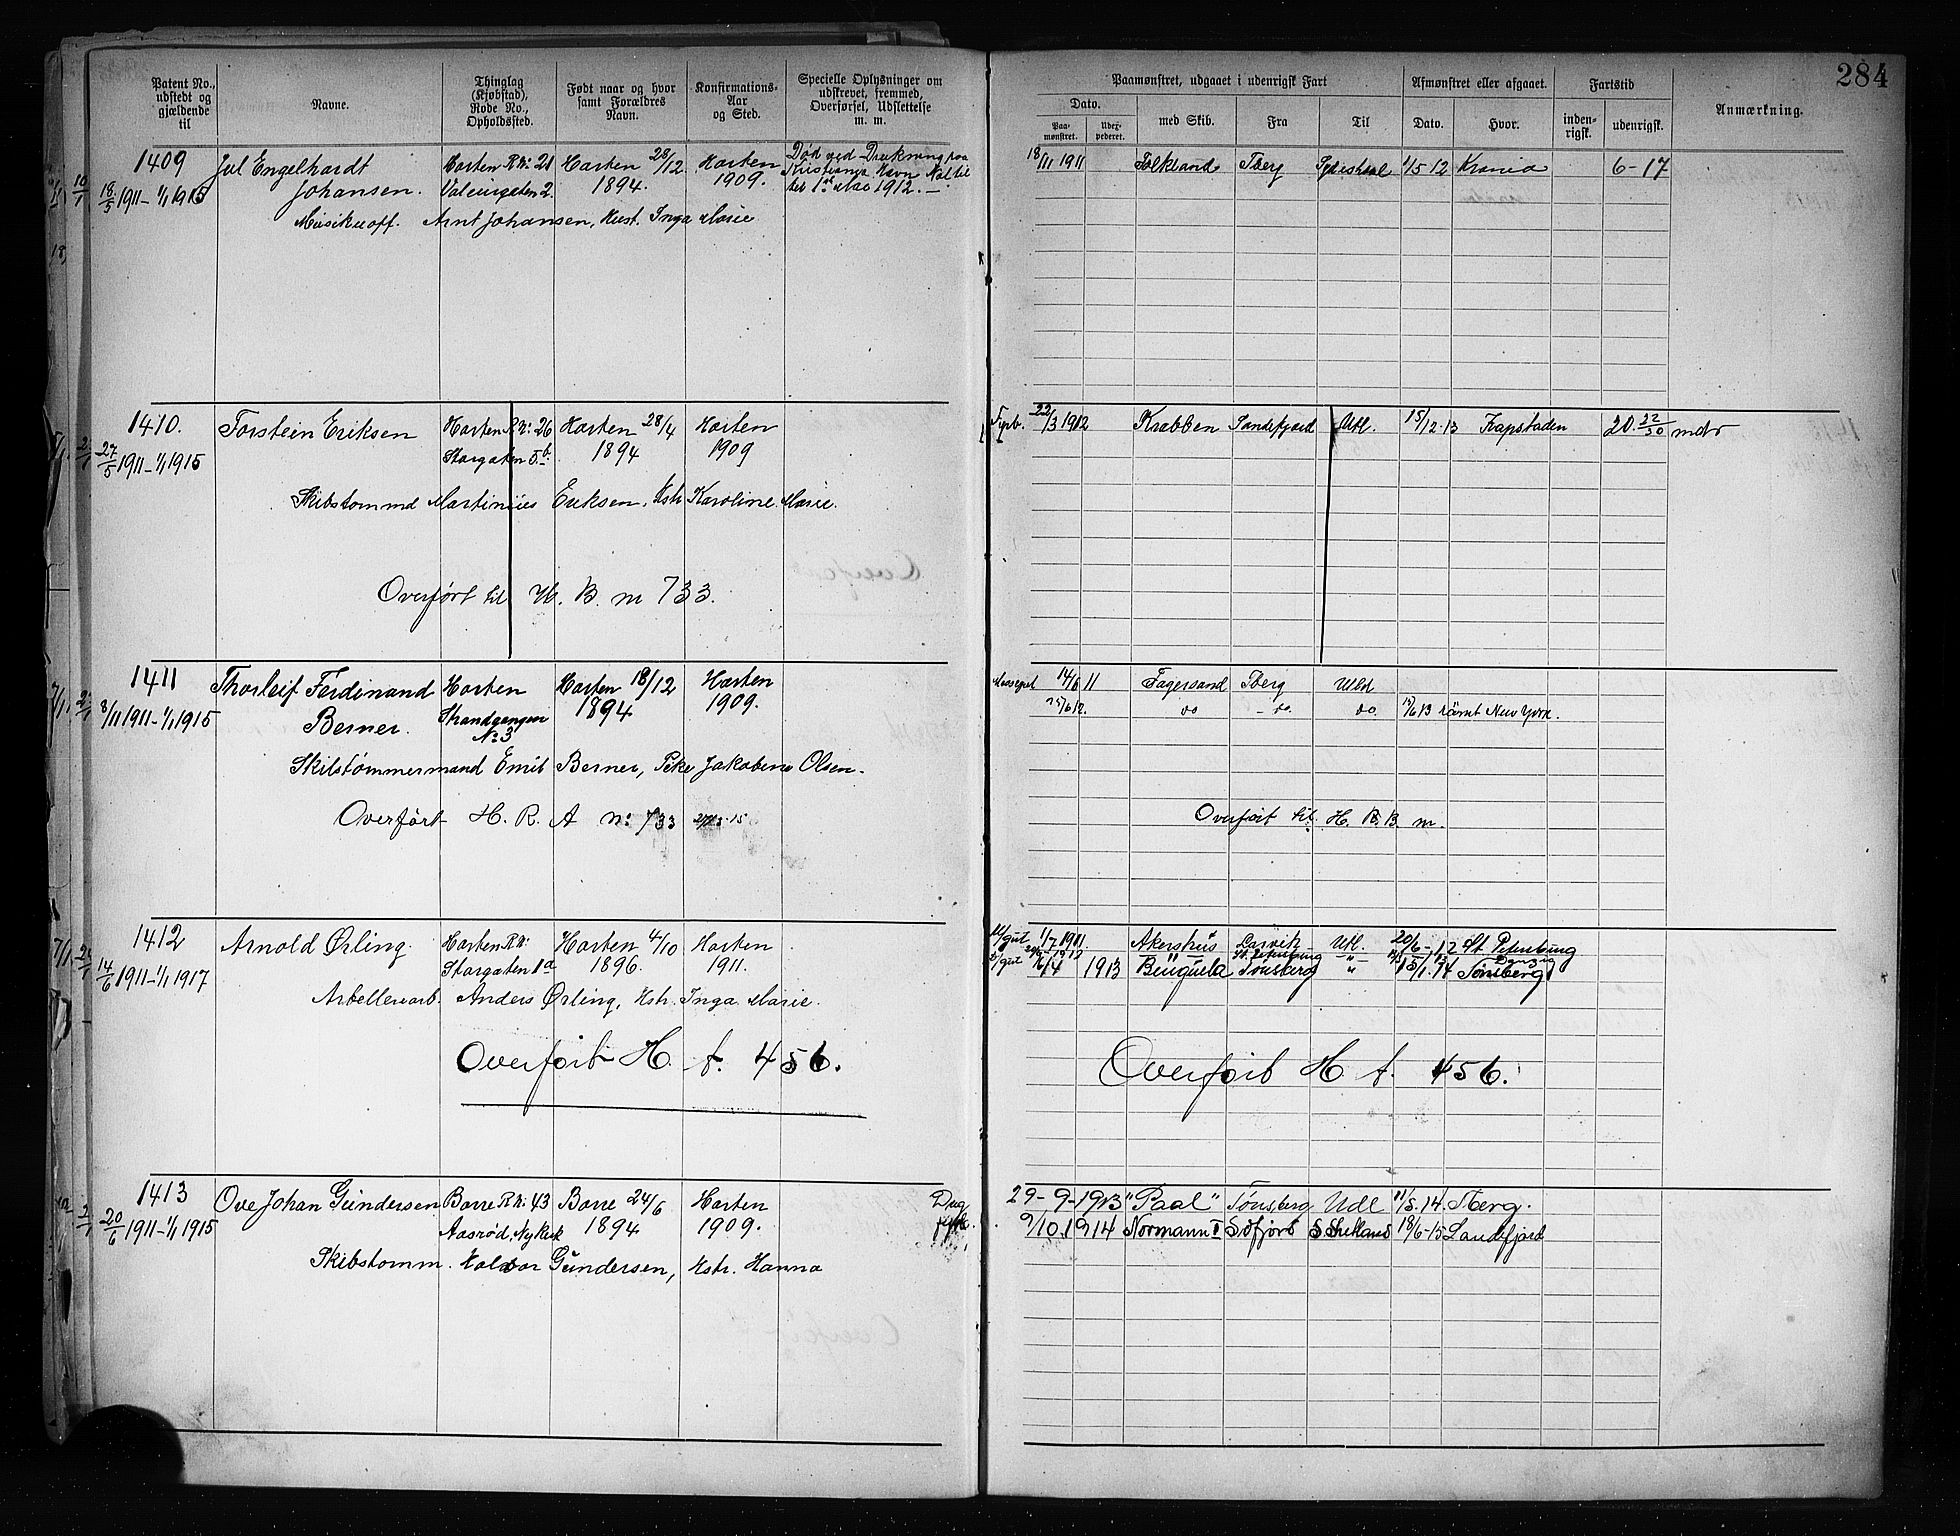 284
Patent No., udstedt og gjældende til
Navne.
Thinglag (Kjøbstad), Rode No., Opholdssted.
Født naar og hvor samt Forældres Navn.
Konfirmations-Aar og Sted.
Specielle Oplysninger om udskrevet, fremmed, Overførsel, Udslettelse m. m.
Paamønstret, udgaaet i udenrigsk Fart
Dato.
Paa-mønstret.
Udex-pederet.
med Skib.
Fra
Til
Afmønstret eller afgaaet.
Dato.
Hvor.
Fartstid
inden-rigsk.
udenrigsk.
Anmærkning.
1409 Jul Engelhardt Horten R.No: 21 Horten 28/12 Horten Død ved Drukning paa
18/5 1911 - 1/1 1915 Johansen. 2. 1894. 1909. Kristiania Havn
1ste Mai 1912.
Arnt Johansen, Hust. Inga Marie
18/11 1911 Falkland Tberg 1/5 12 Krania 6-17
1410. Torstein Eriksen Horten R.No: 26 Horten 28/4 Horten
27/5 1911 - 1/1 1915 Storgaten 5b 1894 1909
Skibstømmd Martinius Eriksen, Hstr Karoline Marie.
Overført til H. B. no 733.
Fyrb. 22/3 1912 Krabben Sandefjord Utl. 15/12 13 Kapstaden 20 22/30 mdr
1411 Thorleif Ferdinand Horten Horten 18/12 Horten
8/11 1911 - 1/1 1915 Berner. Strandgangen No 3 1894 1909.
Skibstømmermand Emil Berner, Pike Jakobine Olsen.
Overført H. R. A no: 733
14/6 11 Fagersand Tberg Utld
25/6 12. do - do. do. 13 rømt New York.
Overført til H. R. B. no.
1412 Arnold Ørling. Horten R.No: Horten 4/10 Horten
14/6 1911 - 1/1 1917 Storgaten 1a 1896. 1911.
Anders Ørling, Hstr. Inga Marie.
Overført H. A. 456.
1/7 1911. Akershus Larvik Utl. 20/6 - 12 St Petersburg
1913 Benguela Tønsberg " 14 Tønsberg
Overført H A. 456.
1413 Ove Johan Gundersen Borre R.No: 43 Borre 24/6 Horten
20/6 1911 - 1/1 1915 Aasrød, Nykirk 1894 1909.
Skibstømm. Halvor Gundersen, Hstr. Hanna
29-9-1913 "Paal" Tønsberg Udl 11/5. 14 Tberg.
9/10. 1914 Normann I S.Shetland 18/6-15 Sandefjord